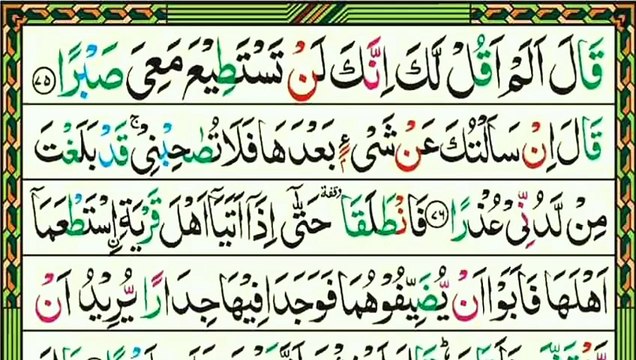 قَالَ اَلَمْ اَقُلْ لَّكَ اِنَّكَ لَنْ تَسْتَطِيْعَ مَعِىَ صَبْرًا ﴿۷۵﴾
قَالَ اِنْ سَاَلْتُكَ عَنْ شَىْءٍۭ بَعْدَهَا فَلَا تُصٰحِبْنِىْ ۚ قَدْ بَلَغْتَ
مِنْ لَّدُنِّىْ عُذْرًا ﴿۷۶﴾ فَانْطَلَقَا وقفة حَتّٰٓى اِذَآ اَتَيَآ اَهْلَ قَرْيَةِ ۨاسْتَطْعَمَآ
اَهْلَهَا فَاَبَوْا اَنْ يُّضَيِّفُوْهُمَا فَوَجَدَا فِيْهَا جِدَارًا يُّرِيْدُ اَنْ